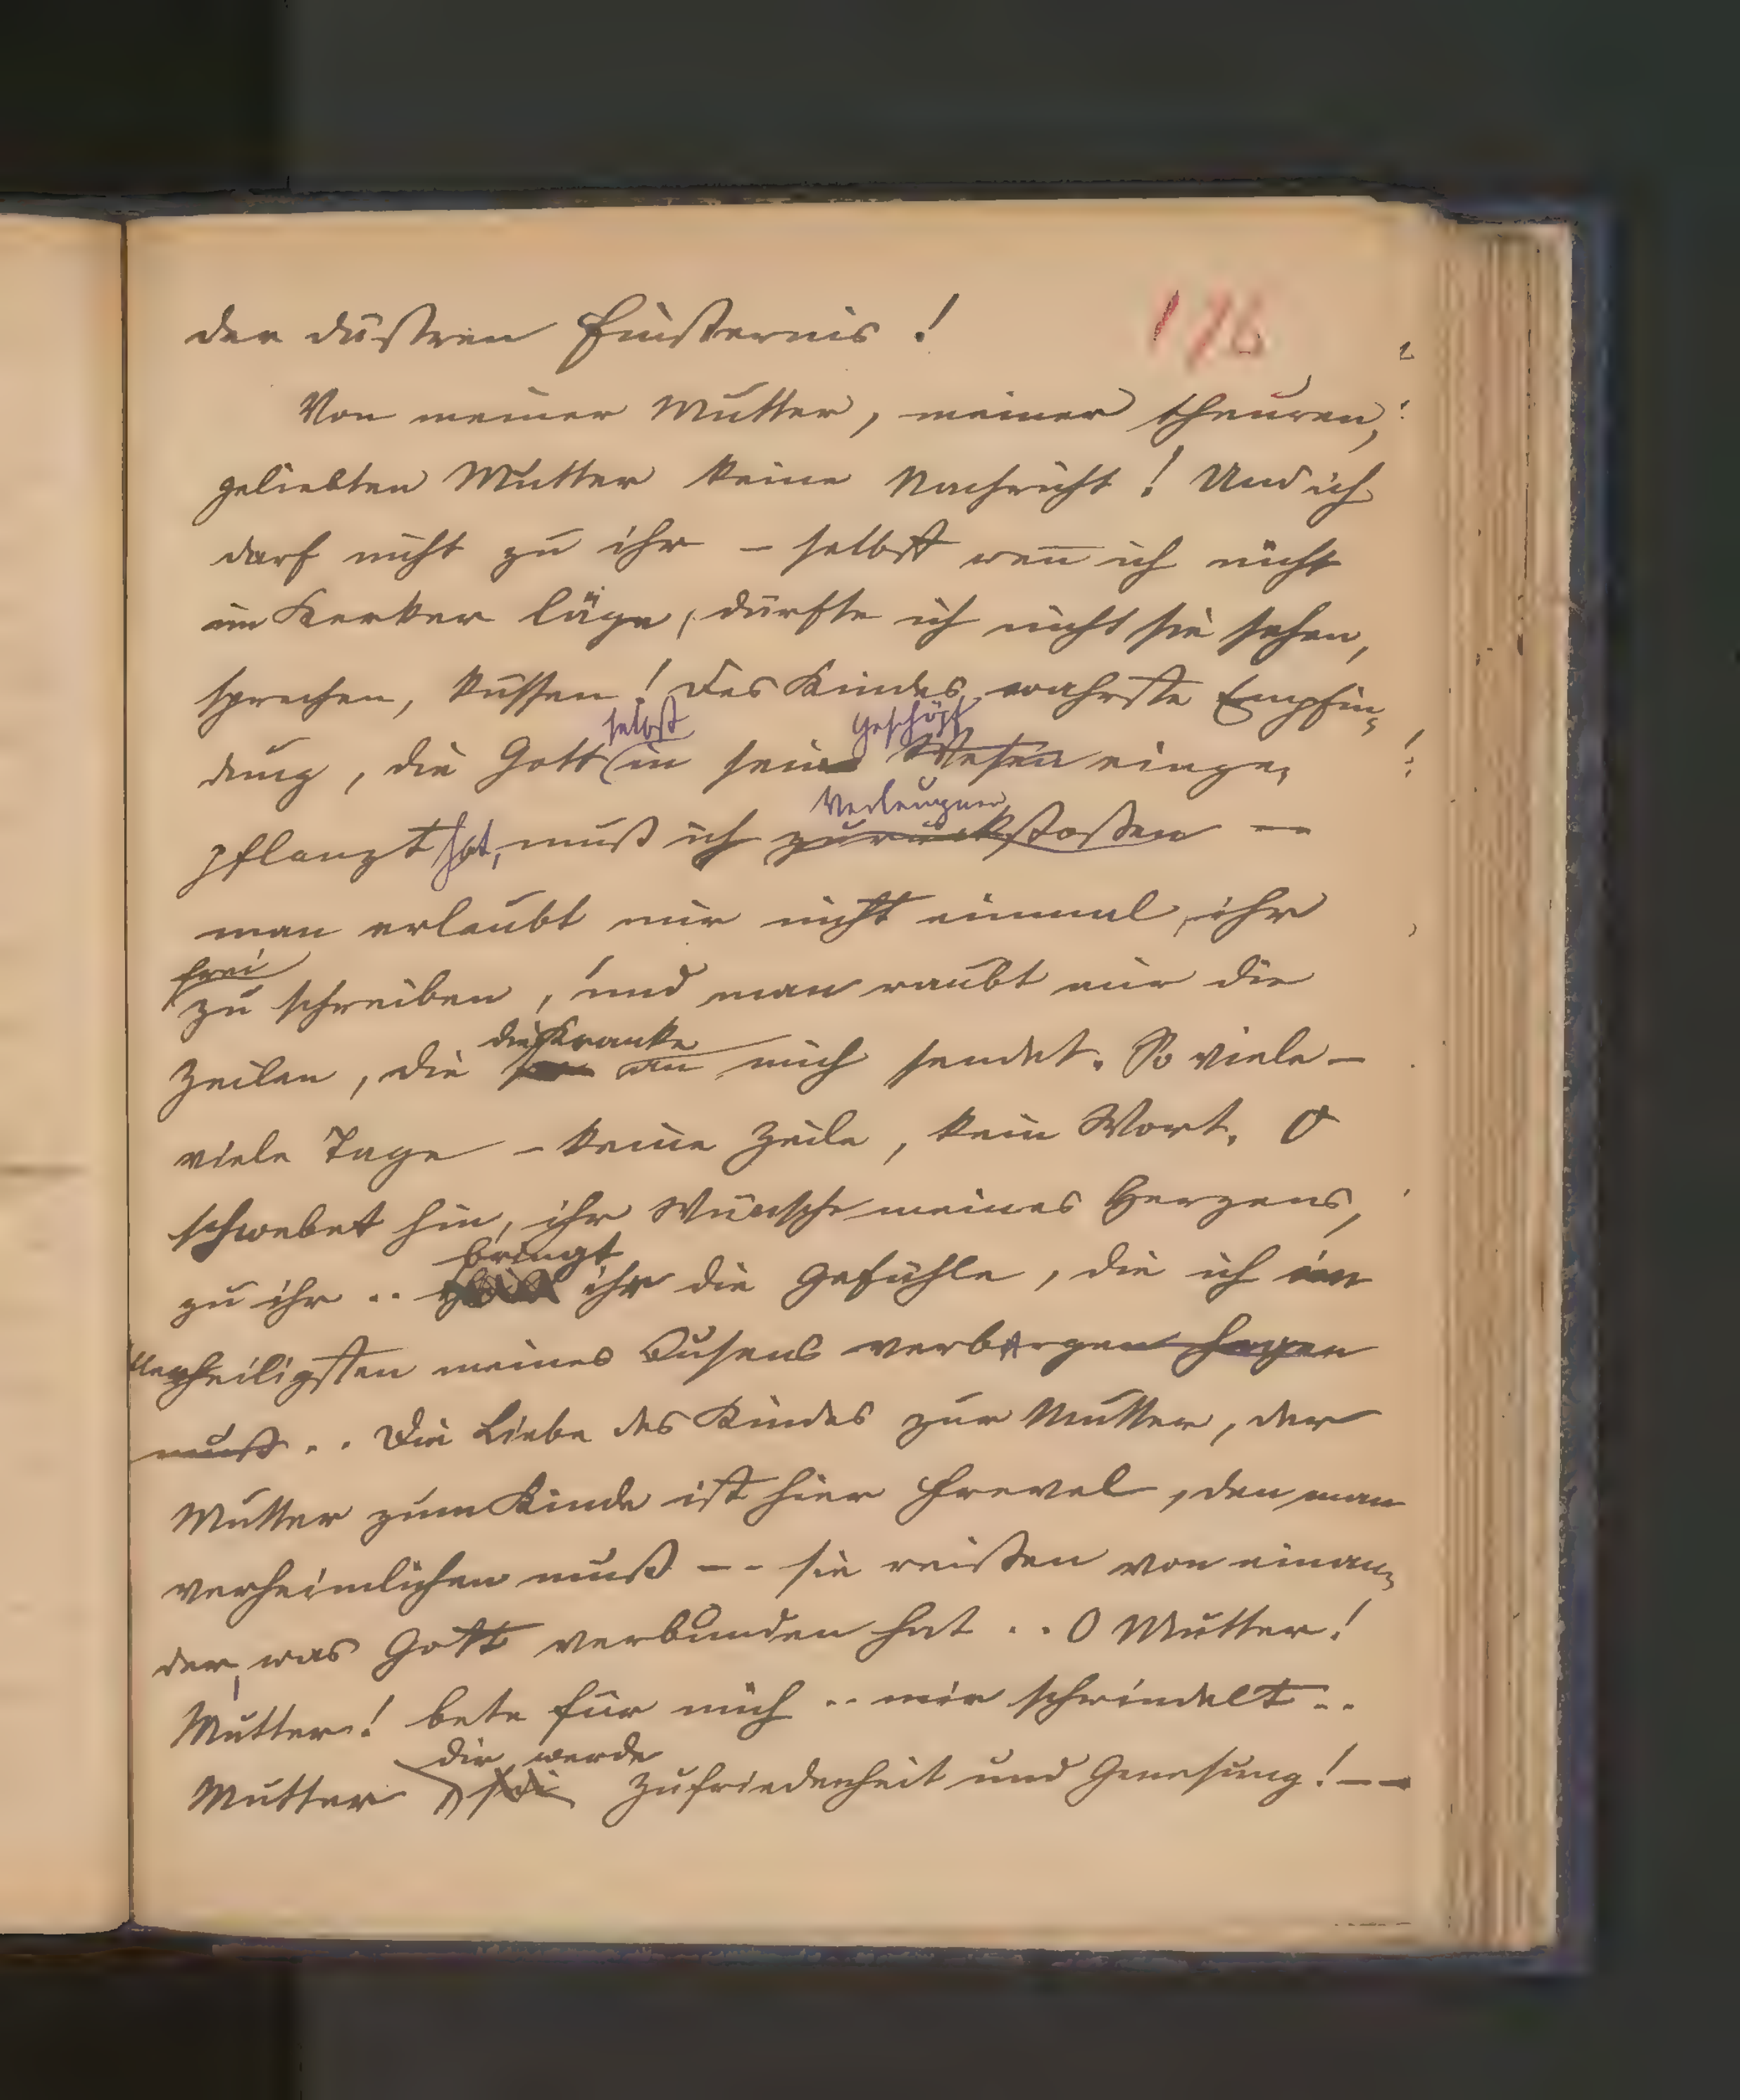 der düstren Finsternis!
176
Von meiner Mutter, meiner theuren,
geliebten Mutter keine Nachricht! Und ich
darf nicht zu ihr – selbst wen̄ ich nicht
im Kerker läge, dürfte ich nicht sie sehen,
sprechen, küssen! Des Kindes wahrste Empfin-
selbst Geschöpf
dung, die Gott in sein Wesen einge-
Verleugnen
pflanzt hat, muß ich zurückstoßen —
man erlaubt mir nicht einmal, ihr
frei
zu schreiben, und man raubt mir die
die Kranke
Zeilen, die an mich sendet. So viele –
viele Tage – keine Zeile, kein Wort. O
schwebet hin, ihr Wünsche meines Herzens,
bringt
zu ihr .. ihr die Gefühle, die ich im
heiligsten meines Busens verbergen
muß .. Die Liebe des Kindes zur Mutter, der
Mutter zum Kinde ist hier Frevel, den man
verheimlichen muß – – sie reißen von einan-
der, was Gott verbunden hat .. O Mutter!
Mutter! bete für mich .. mir schwindelt ..
dir werde
Mutter sei Zufriedenheit und Genesung! – –